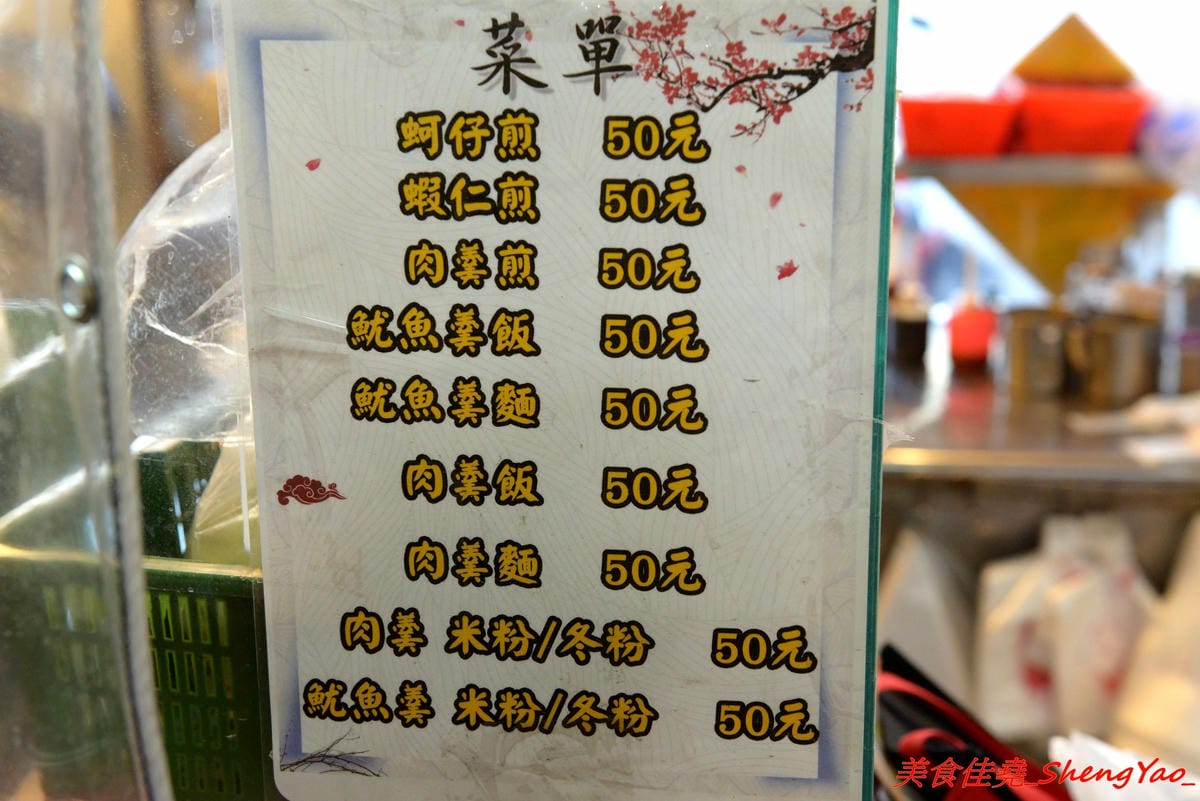 菜單
蚵仔煎 50元
蝦仁煎 50元
肉羹煎 50元
魷魚羹飯 50元
魷魚羹麵 50元
肉羹飯 50元
肉羹麵 50元
肉羹 米粉/冬粉 50元
魷魚羹 米粉/冬粉 50元
美食佳堯_ShengYao_